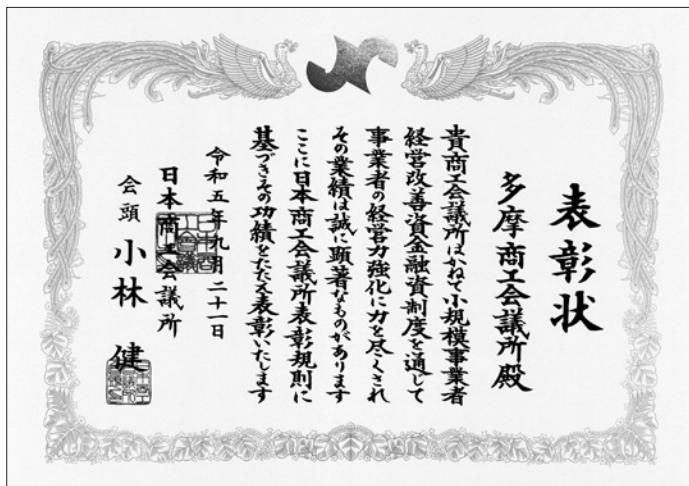 表彰状
多摩商工会議所殿
貴商工会議所はかねて小規模事業者
経営改善資金融資制度を通じて
事業者の経営力強化に力を尽くされ
その業績は誠に顕著なものがあります
ここに日本商工会議所表彰規則に
基づきその功績をたたえ表彰いたします
令和五年九月二十一日
日本商工会議所
会頭 小林 健